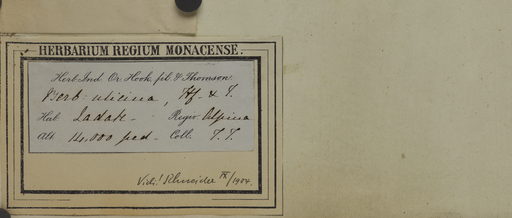 HERBARIUM REGIUM MONACENSE.
Herb. Ind. Or. Hook. fil. & Thomson.
Berb. ulicina, Hf. & T.
Hab. Ladak - Regio Alpina
Alt. 14,000 ped. Coll. T. T.
Vidi! Schneider IX/1904